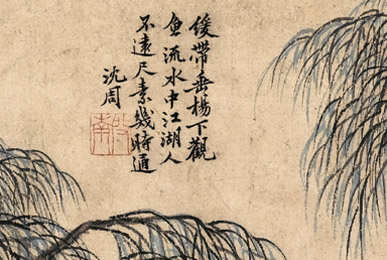 緩帶垂楊下觀
魚流水中江湖人
不遠尺素幾時通
沈周
啟南